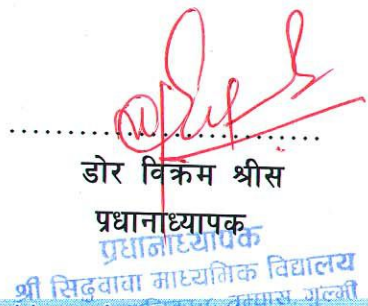 डोर विक्रम श्रीस
प्रधानाध्यापक
प्रधानाध्यापक
श्री सिद्धवावा माध्यमिक विद्यालय
गुल्मी